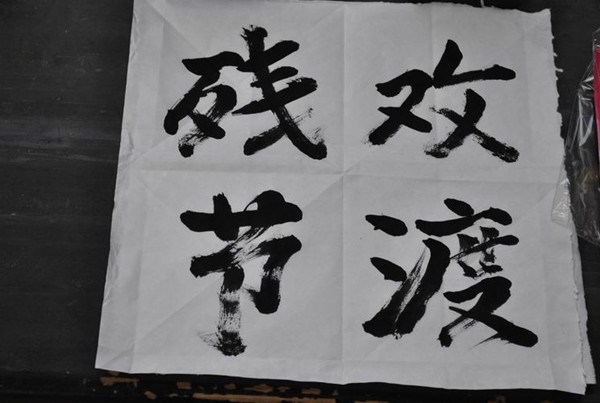 欢渡
残节